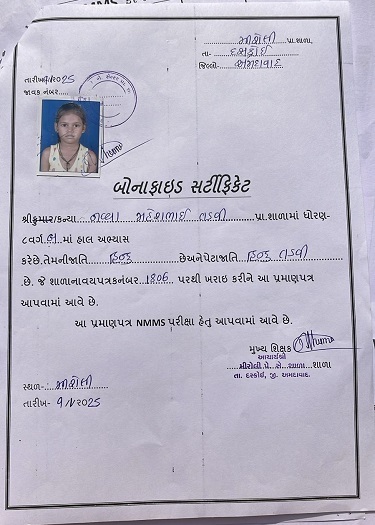 ભારોલી પ્રા.શાળા,
તા- દસક્રોઈ
જિલ્લો- અમદાવાદ
તારીખ-9/1/2025
જાવક નંબર......
બોનાફાઇડ સર્ટીફિકેટ
શ્રીકુમાર/કન્યા નવ્યા મહેશભાઈ તડવી પ્રા.શાળામાં ધોરણ-
૮વર્ગ માં હાલ અભ્યાસ
કરેછે.તેમનીજાતિ હિન્દુ છેઅનેપેટાજાતિ હિન્દુ તડવી
છે. જે શાળાનાવયપત્રકનંબર 1806 પરથી ખરાઇ કરીને આ પ્રમાણપત્ર
આપવામાં આવે છે.
આ પ્રમાણપત્ર NMMS પરીક્ષા હેતુ આપવામાં આવે છે.
મુખ્ય શિક્ષક
આચાર્યશ્રી
પ્રા. શાળા શાળા
તા. દસ્ક્રોઇ, જી. અમદાવાદ.
સ્થળ-
તારીખ- 9/1/2025